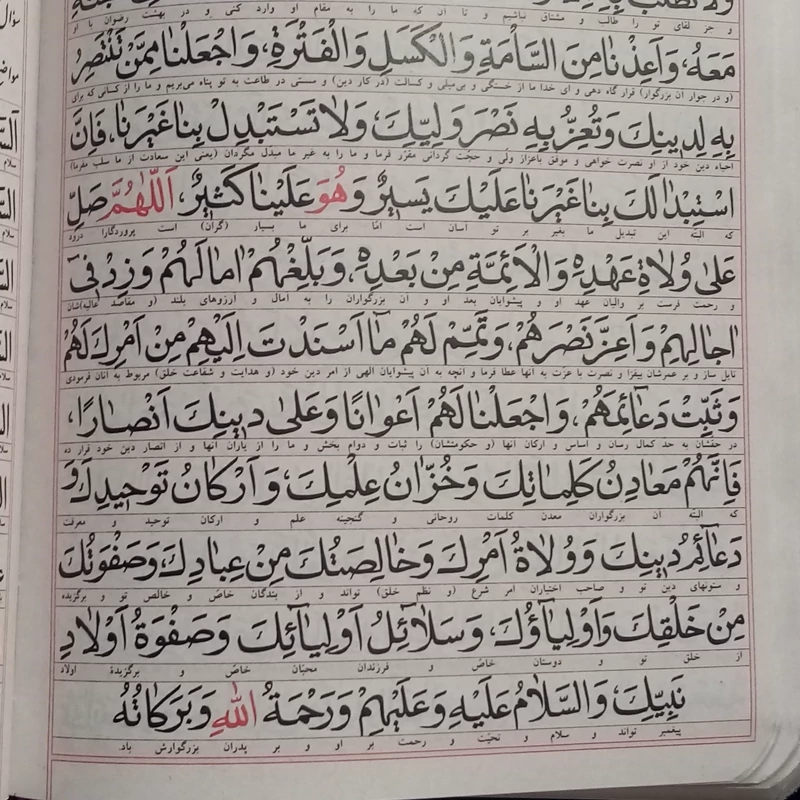 و جز لقای تو را طالب و مشتاق نباشیم و تا آن که ما را به مقام او وارد کنی و در بهشت رضوان با او
مَعَهُ، وَاَعِذْنا مِنَ السَّاْمَةِ وَالْكَسَلِ وَالْفَتْرَةِ، وَاجْعَلْنا مِمَّنْ تَنْتَصِرُ
(و در جوار آن بزرگوار) قرار گاه دهی و ای خدا ما از خستگی و بی‌میلی و کسالت (در کار دین) و سستی در طاعت به تو پناه می‌بریم و ما را از کسانی که برای
بِهِ لِدينِكَ وَتُعِزُّ بِهِ نَصْرَ وَلِيِّكَ، وَلا تَسْتَبْدِلْ بِنا غَيْرَنا، فَاِنَّ
احیاء دین خود از او نصرت خواهی و موفق باعزاز ولی و حجت گردانی مقرّر فرما و ما را به غیر ما مبدل مگردان (یعنی این سعادت از ما سلب مفرما)
اسْتِبْدالَكَ بِنا غَيْرَنا عَلَيْكَ يَسيرٌ وَهُوَ عَلَيْنا كَثيرٌ، اَللّهُمَّ صَلِّ
که البته این تبدیل ما بغیر بر تو آسان است اما برای ما بسیار (گران) است پروردگارا درود
عَلى وُلاةِ عَهْدِهِ وَالْاَئِمَّةِ مِنْ بَعْدِهِ، وَبَلِّغْهُمْ امالَهُمْ وَزِدْ في
و رحمت فرست بر والیان عهد او و پیشوایان بعد او و آن بزرگواران را به آمال و آرزوهای بلند (و مقاصد عالیه)شان
اجالِهِمْ وَاَعِزَّ نَصْرَهُمْ، وَتَمِّمْ لَهُمْ ما اَسْنَدْتَ اِلَيْهِمْ مِنْ اَمْرِكَ لَهُمْ
نایل ساز و بر عمرشان بیفزا و نصرت با عزت به آنها عطا فرما و آنچه به آن پیشوایان الهی از امر دین خود (و هدایت و شفاعت خلق) مربوط به آنان فرمودی
وَثَبِّتْ دَعائِمَهُمْ، وَاجْعَلْنا لَهُمْ اَعْوانًا وَعَلى دينِكَ اَنْصارًا،
در حقشان به حد کمال رسان و اساس و ارکان آنها (و حکومتشان) را ثبات و دوام بخش و ما را از یاران آنها و از انصار دین خود قرار ده
فَاِنَّهُمْ مَعادِنُ كَلِماتِكَ وَخُزّانُ عِلْمِكَ، وَاَرْكانُ تَوْحيدِكَ وَ
که البته آن بزرگواران معدن کلمات روحانی و گنجینه علم و ارکان توحید و معرفت
دَعائِمُ دينِكَ وَوُلاةُ اَمْرِكَ وَخالِصَتُكَ مِنْ عِبادِكَ، وَصَفْوَتُكَ
و ستونهای دین تو و صاحب اختیاران امر شرع (و نظم خلق) تواند و از بندگان خاصّ و خالص تو و برگزیده
مِنْ خَلْقِكَ وَاَوْلِياؤُكَ، وَسَلائِلُ اَوْلِيائِكَ وَصَفْوَةُ اَوْلادِ
از خلق تو و دوستان خاصّ و فرزندان محبّان خاصّ و برگزیدهٔ اولاد
نَبِيِّكَ، وَالسَّلامُ عَلَيْهِ وَعَلَيْهِمْ وَرَحْمَةُ اللهِ وَبَرَكاتُهُ
پیغمبر تواند و سلام و تحیّت و رحمت بر او و بر پدران بزرگوارش باد.